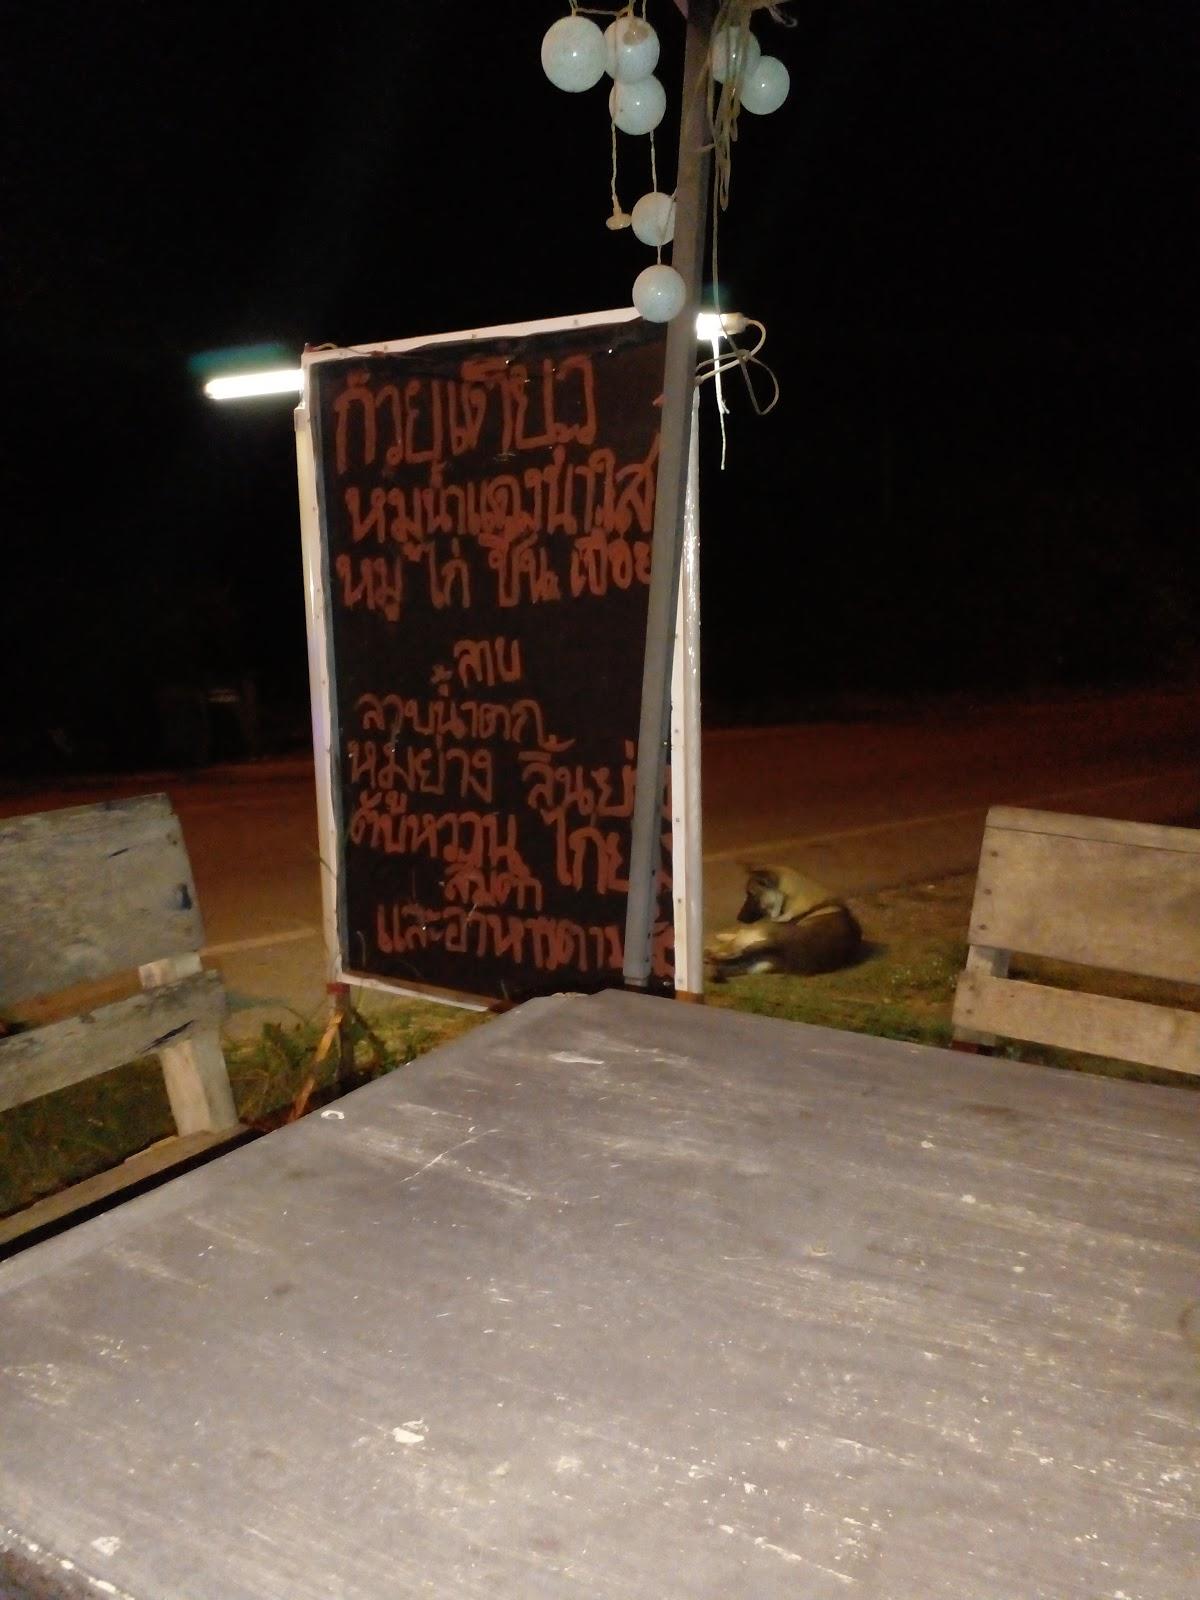 ก๋วยเตี๋ยว
หมูน้ำแดงน้ำใส
หมู ไก่ ชิ้น เปื่อย
ลาบ
ลวบน้ำตก
หมูย่าง ลิ้นย่าง
ตับหวาน ไก่ย่าง
ส้มตำ
และอาหารตาม